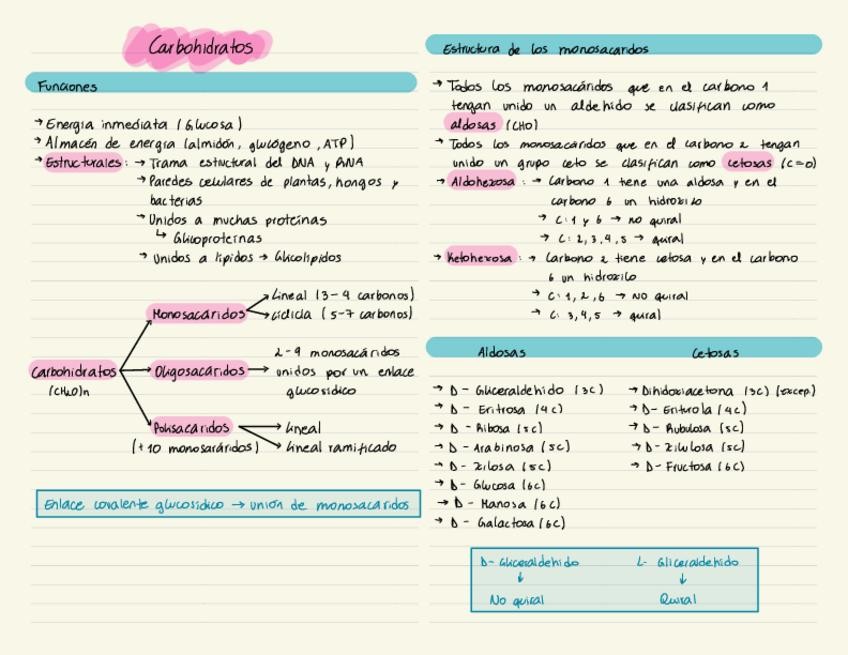 Carbohidratos
Funciones
→ Energia inmediata (Glucosa)
→ Almacén de energía (almidón, glucógeno, ATP)
→ Estructurales: → Trama estructural del DNA y RNA
→ Paredes celulares de plantas, hongos y
bacterias
→ Unidos a muchas proteínas
↳ Glucoproteínas
→ Unidos a lípidos → Glicolipidos
Monosacáridos
Lineal (3-4 carbonos)
Cíclicla (5-7 carbonos)
Carbohidratos
(CH₂O)n
Oligosacáridos
2-9 monosacáridos
unidos por un enlace
glucosídico
Polisacáridos
(+10 monosacáridos)
Lineal
Lineal ramificado
Enlace covalente glucosídico → unión de monosacaridos
Estructura de los monosacaridos
→ Todos los monosacáridos que en el carbono 1
tengan unido un aldehido se clasifican como
aldosas (CHO)
→ Todos los monosacáridos que en el carbono 2 tengan
unido un grupo ceto se clasifican como cetosas (C=O)
→ Aldohexosa: → Carbono 1 tiene una aldosa y en el
carbono 6 un hidroxilo
→ C: 1 y 6 → no quiral
→ C: 2,3,4,5 → quiral
→ Ketohexosa: → Carbono 2 tiene cetosa y en el carbono
6 un hidroxilo
→ C: 1,2,6 → NO quiral
→ C: 3,4,5 → quiral
Aldosas Cetosas
→ D - Gliceraldehido (3C) → Dihidoxiacetona (3C) (excep.)
→ D - Eritrosa (4C) → D - Eritrulola (4C)
→ D - Ribosa (5C) → D - Rubulosa (5C)
→ D - Arabinosa (5C) → D - Xilulosa (5C)
→ D - Xilosa (5C) → D - Fructosa (6C)
→ D - Glucosa (6C)
→ D - Manosa (6C)
→ D - Galactosa (6C)
D- Gliceraldehido L- Gliceraldehido
↓ ↓
No quiral Quiral